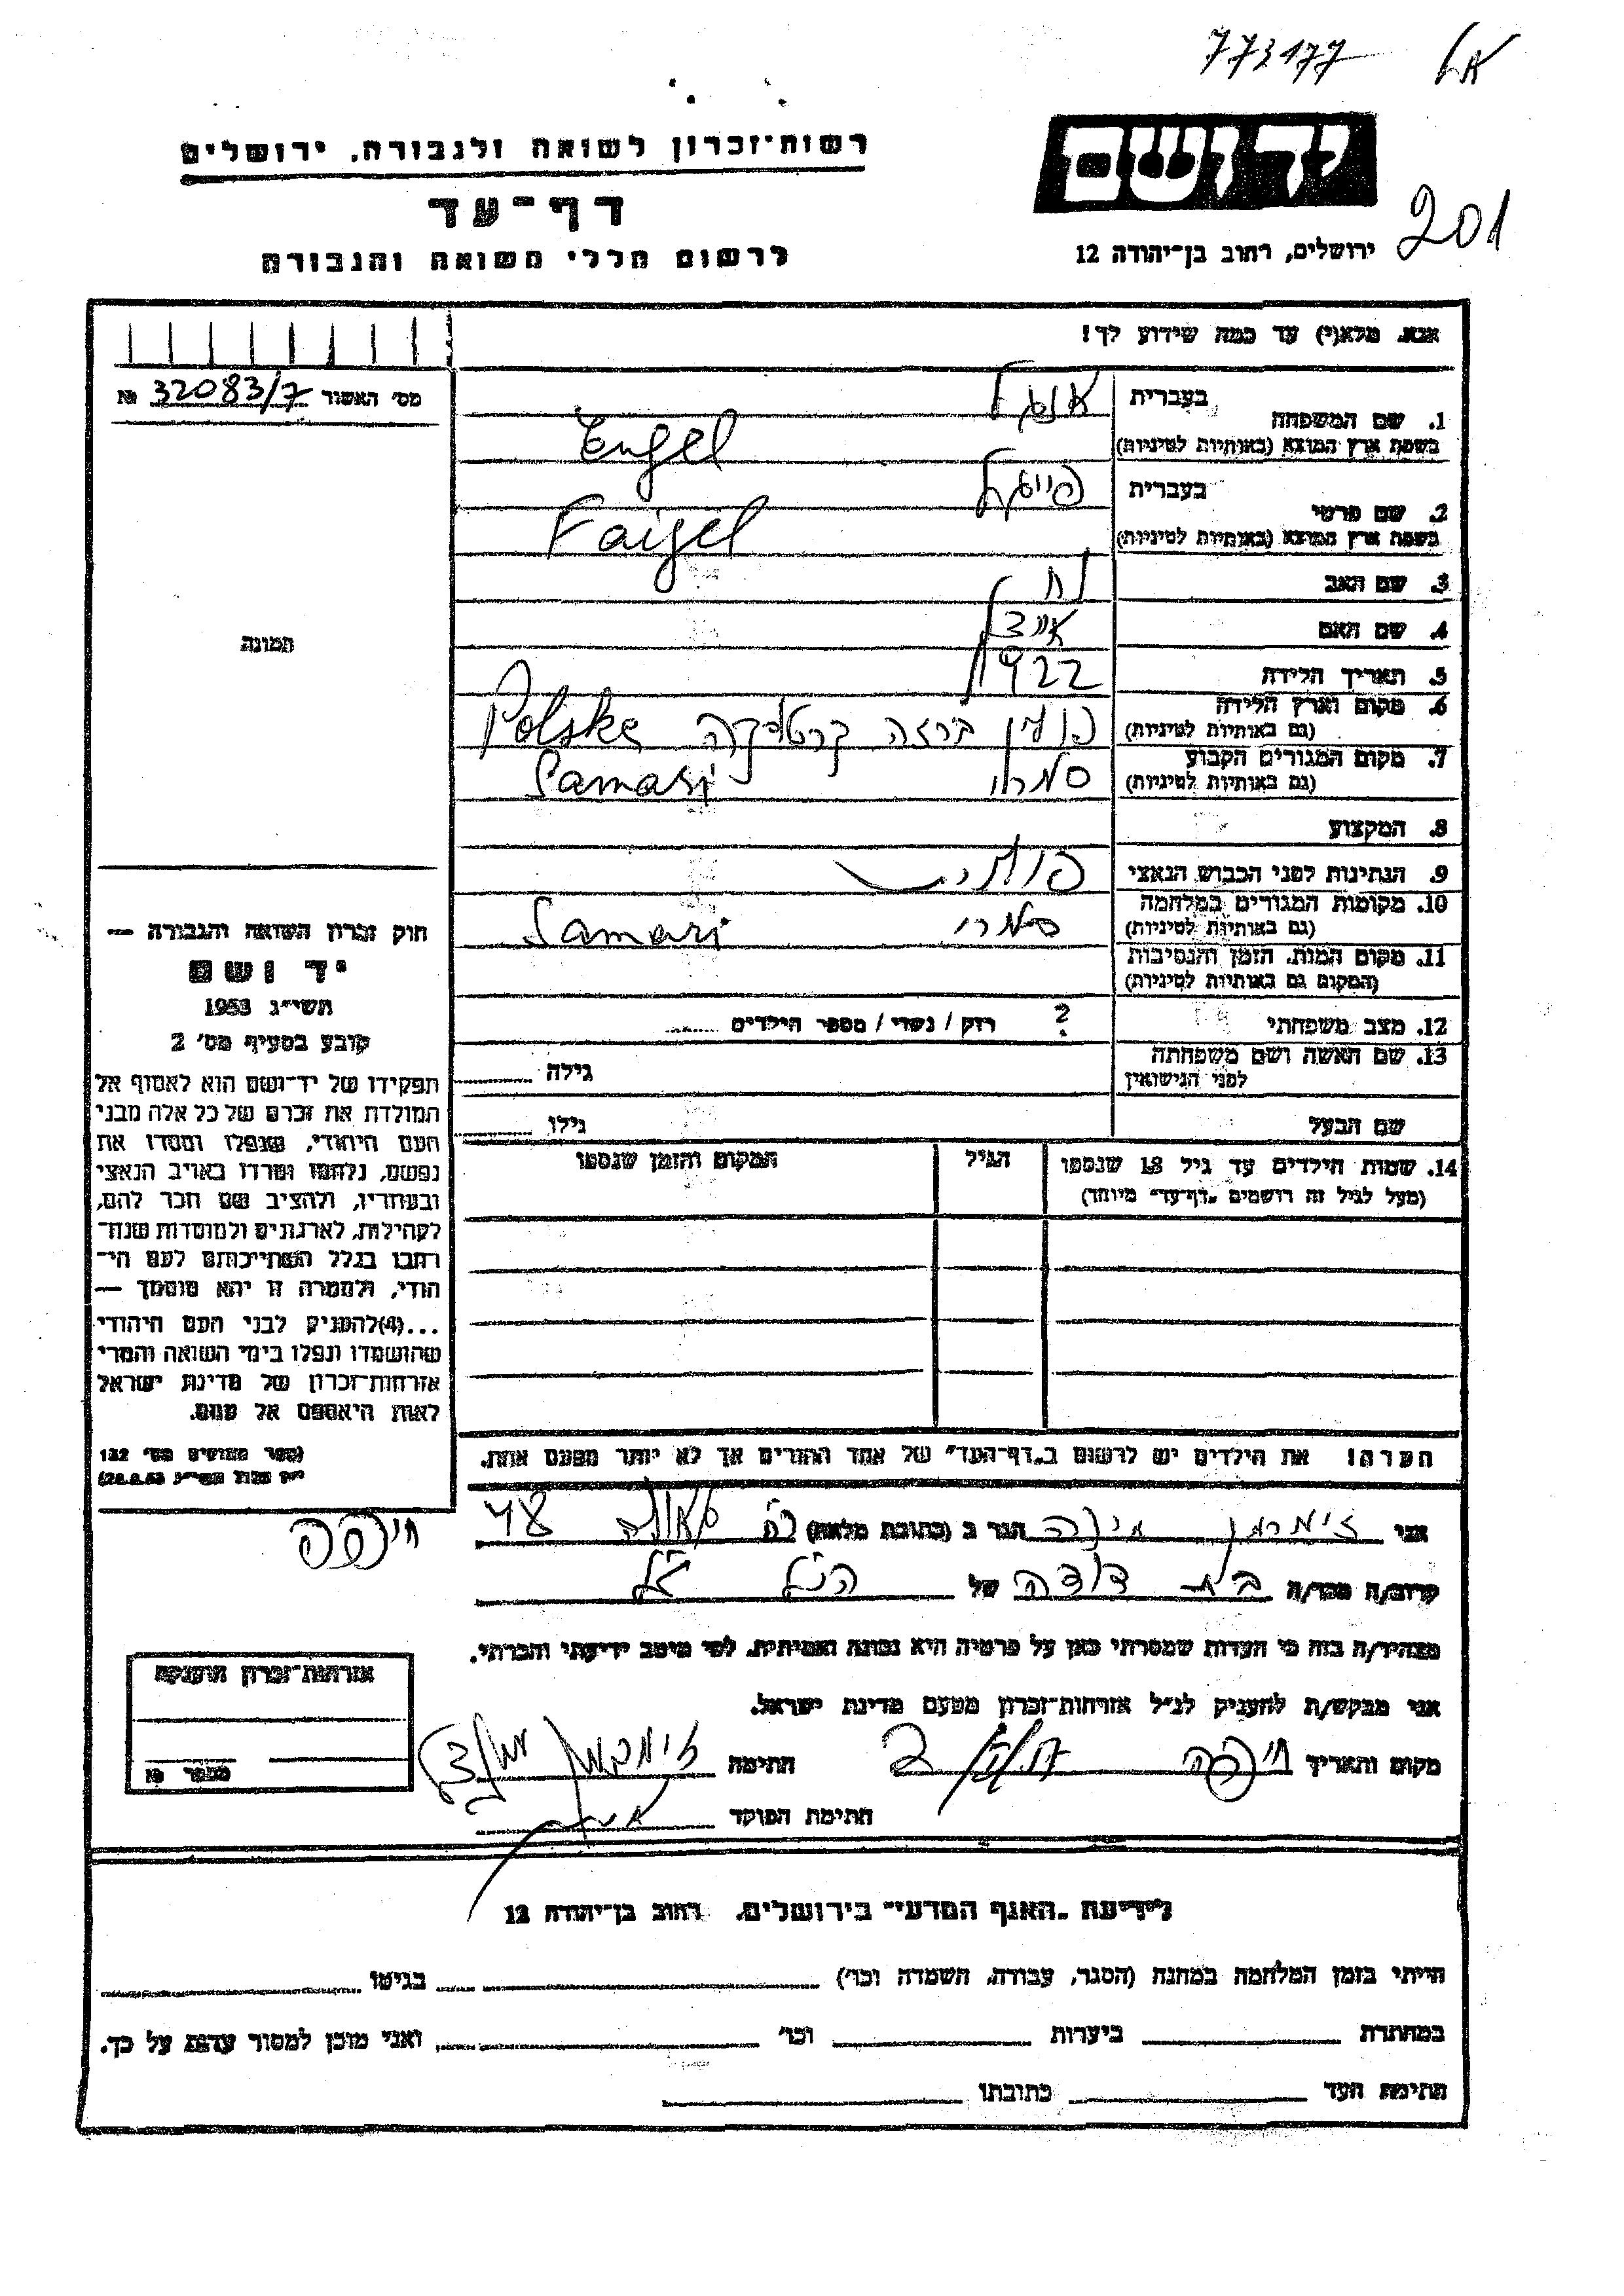 773177
רשות־זכרון לשואה ולגבורה, ירושלים
יד ושם
דף־עד
201
לרשום חללי השואה והגבורה
ירושלים, רחוב בן־יהודה 12
אנא, מלא(י) עד כמה שידוע לך!
מס׳ האשור 32083/7 №
1. שם המשפחה
בעברית אנגל
בשפת ארץ המוצא (באותיות לטיניות) Engel
2. שם פרטי
בעברית פייגל
בשפת ארץ המוצא (באותיות לטיניות) Faigel
3. שם האב
4. שם האם
5. תאריך הלידה 1922
6. מקום וארץ הלידה
(גם באותיות לטיניות) פולין Polske
7. מקום המגורים הקבוע
(גם באותיות לטיניות) סמרי Samari
8. המקצוע
9. הנתינות לפני הכבוש הנאצי
10. מקומות המגורים במלחמה
(גם באותיות לטיניות) סמרי Samari
11. מקום המות, הזמן והנסיבות
(המקום גם באותיות לטיניות)
12. מצב משפחתי ? רוק / נשוי / מספר הילדים
13. שם האשה ושם משפחתה
לפני הנישואין גילה
שם הבעל גילו
14. שמות הילדים עד גיל 18 שנספו הגיל המקום והזמן שנספו
(מעל לגיל זה רושמים „דף־עד״ מיוחד)
הערה! את הילדים יש לרשום ב„דף־העד״ של אחד ההורים אך לא יותר מפעם אחת.
תמונה
חוק זכרון השואה והגבורה —
יד ושם
תשי״ג 1953
קובע בסעיף מס׳ 2
תפקידו של יד־ושם הוא לאסוף אל
המולדת את זכרם של כל אלה מבני
העם היהודי, שנפלו ומסרו את
נפשם, נלחמו ומרדו באויב הנאצי
ובעוזריו, ולהציב שם וזכר להם,
לקהילות, לארגונים ולמוסדות שנח־
רבו בגלל השתייכותם לעם הי־
הודי, ולמטרה זו יהא מוסמך —
...(4)להעניק לבני העם היהודי
שהושמדו ונפלו בימי השואה והמרי
אזרחות־זכרון של מדינת ישראל
לאות היאספם אל עמם.
(ספר החוקים מס׳ 132
י״ז אלול תשי״ג 28.8.53)
אני זימרמן מינה הגר ב (כתובת מלאה) 48
חיפה
קרוב/ה מכר/ה בת דודה של הנ״ל
מצהיר/ה בזה כי העדות שמסרתי כאן על פרטיה היא נכונה ואמיתית, לפי מיטב ידיעתי והכרתי.
אני מבקש/ת להעניק לנ״ל אזרחות־זכרון מטעם מדינת ישראל.
מקום ותאריך חיפה חתימה
חתימת הפוקד
אזרחות־זכרון הוענקה
מספר №
לידיעת „האגף המדעי״ בירושלים, רחוב בן־יהודה 12
הייתי בזמן המלחמה במחנה (הסגר, עבודה, השמדה וכו׳) בגיטו
במחתרת ביערות וכו׳ ואני מוכן למסור עדות על כך.
חתימת העד כתובתו